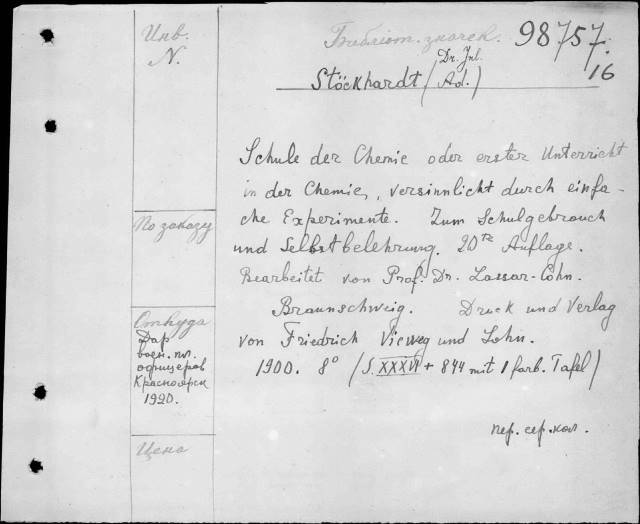 Инв.
N.
Библиот. значек. 98757.
16
Dr. Jul.
Stöckhardt (Ad.)
Schule der Chemie oder erster Unterricht
in der Chemie, versinnlicht durch einfa-
che Experimente. Zum Schulgebrauch
und Selbstbelehrung. 20te Auflage.
Bearbeitet von Prof. Dr. Lassar-Cohn.
Braunschweig. Druck und Verlag
von Friedrich Vieweg und Sohn.
1900. 8° (S. XXXVI + 844 mit 1 farb. Tafel)
пер. сер. кол.
По заказу
Откуда
Дар
воен. пл.
офицеров
Красноярск
1920.
Цена